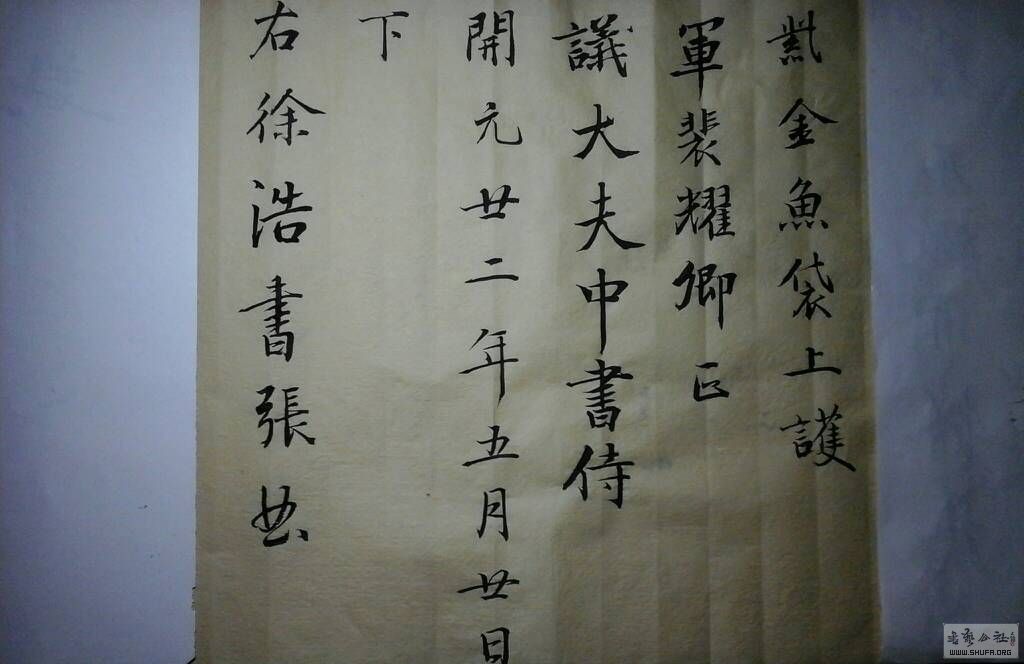 紫金魚袋上護
軍裴耀卿
議大夫中書侍
開元廿二年五月廿日
下
右徐浩書張曲
WWW.SHUFA.ORG